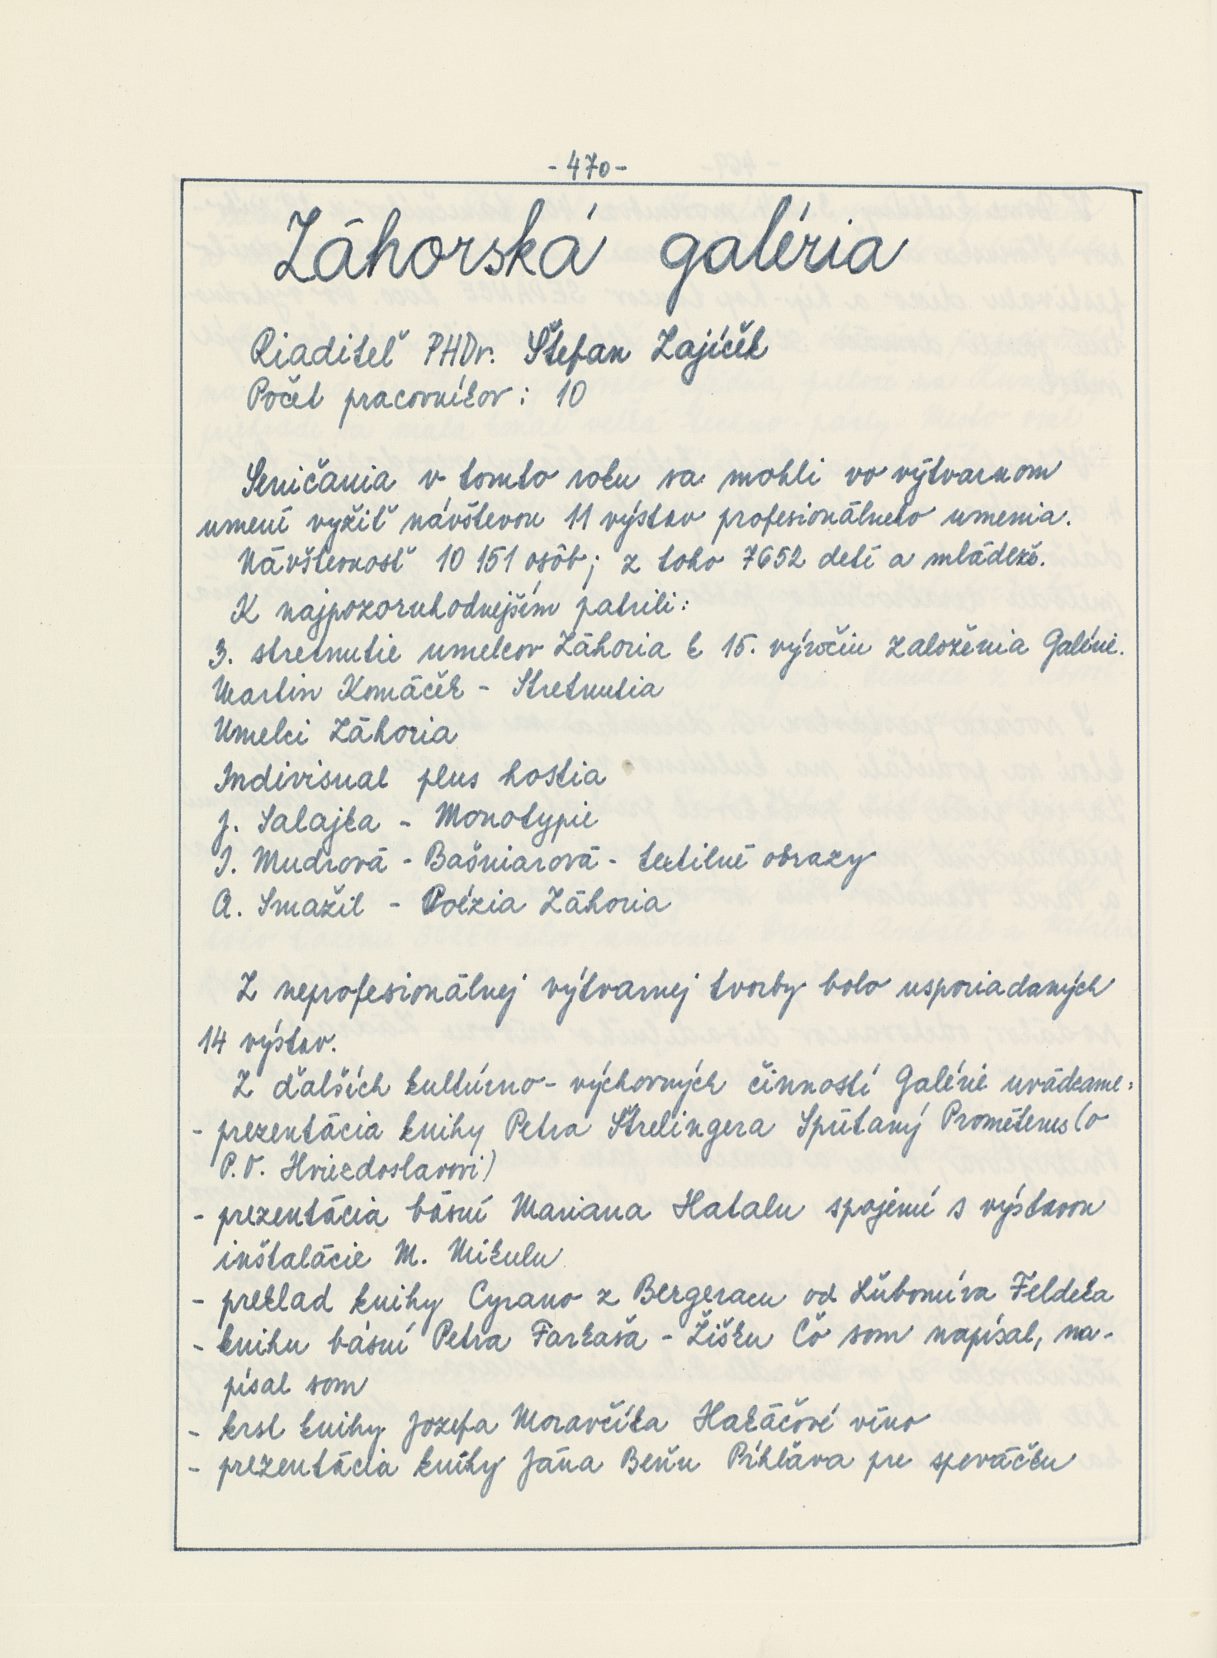 - 470 -
Záhorská galéria
Riaditeľ PHDr. Štefan Zajíček
Počet pracovníkov: 10
Seničania v tomto roku sa mohli vo výtvarnom
umení vyžiť návštevou 11 výstav profesionálneho umenia.
Návštevnosť 10 151 osôb; z toho 7652 detí a mládeže.
K najpozoruhodnejším patrili:
3. stretnutie umelcov Záhoria k 15. výročiu založenia Galérie.
Martin Komáček - Stretnutia
Umelci Záhoria
Indivisual plus hostia
J. Salajka - Monotypie
I. Mudrová - Bašniarová - textilné obrazy
A. Smažil - Poézia Záhoria
Z neprofesionálnej výtvarnej tvorby bolo usporiadaných
14 výstav.
Z ďalších kultúrno-výchovných činností Galérie uvádzame:
- prezentácia knihy Petra Štrelingera Spútaný Prométeus (o
P.O. Hviezdoslavovi)
- prezentácia básní Mariana Hatalu spojené s výstavou
inštalácie M. Mikulu
- preklad knihy Cyrano z Bergeracu od Ľubomíra Feldeka
- knihu básní Petra Farkaša - Žišku Čo som napísal, na-
písal som
- krst knihy Jozefa Moravčíka Hakáčové víno
- prezentácia knihy Jána Beňu Príhľava pre speváčku